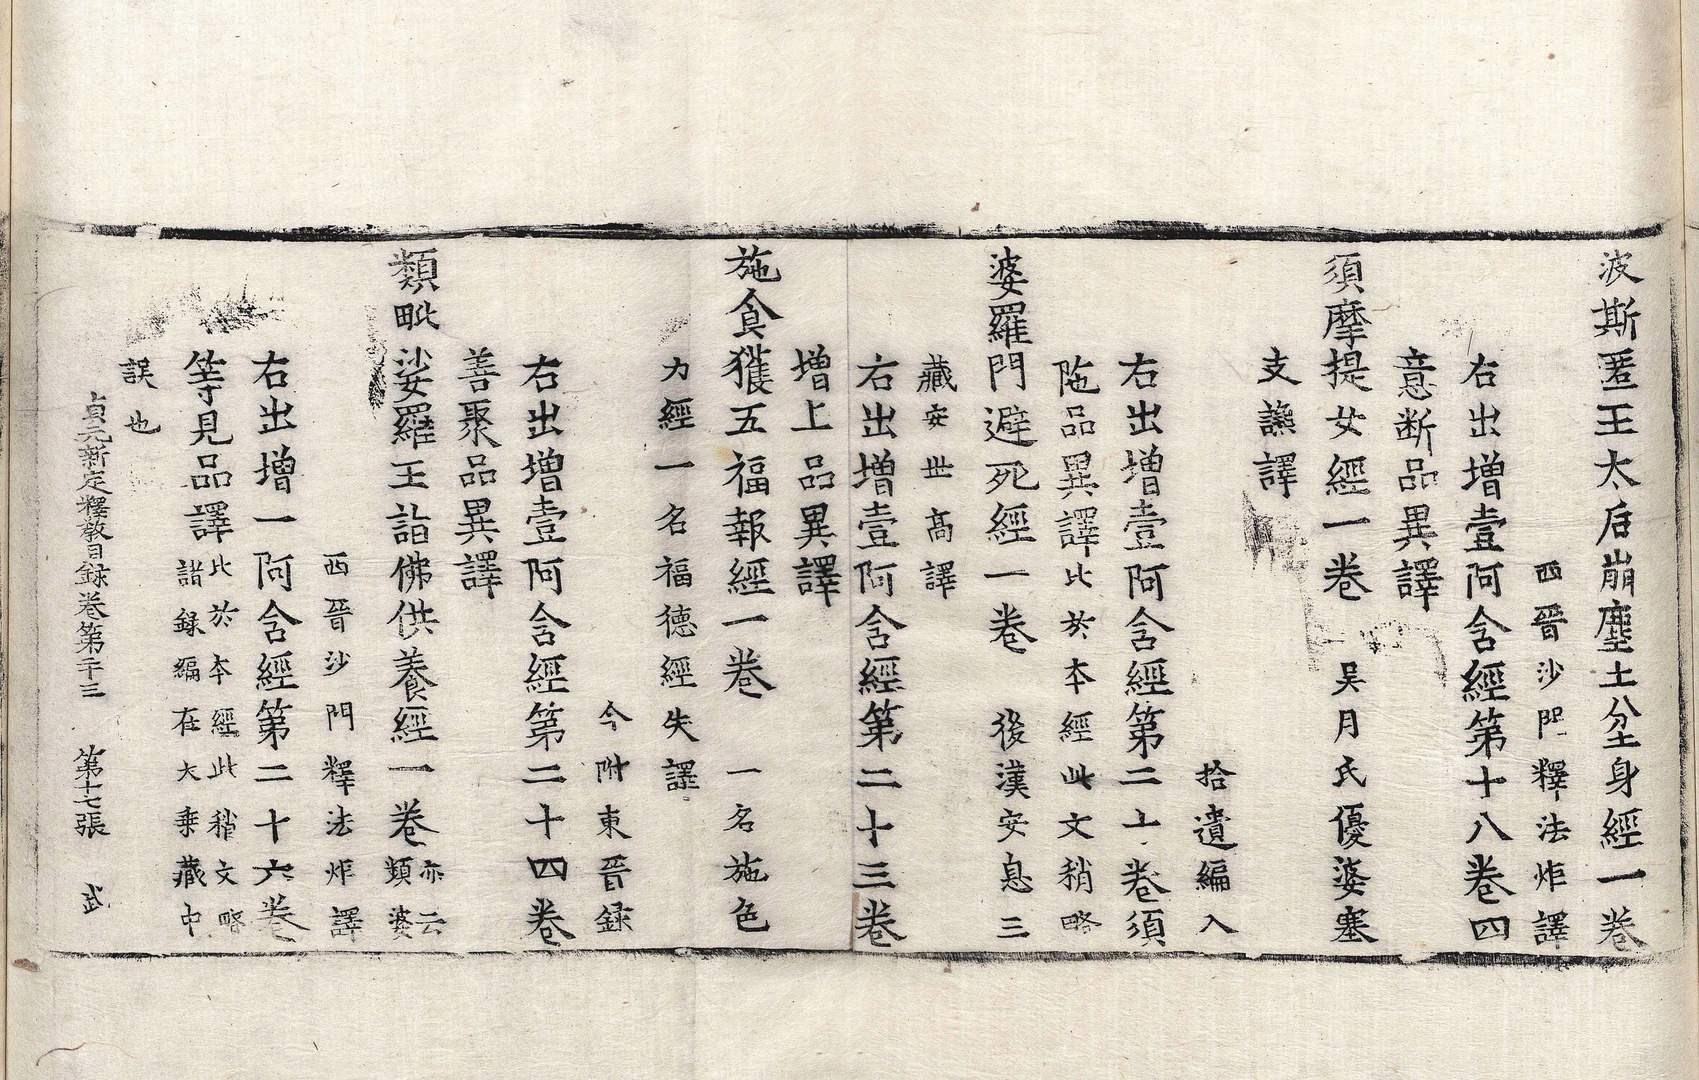 波斯匿王太后崩塵土坌身經一卷
西晉沙門釋法炬譯
右出增壹阿含經第十八卷四
意断品異譯
須摩提女經一卷 吴月氏優婆塞
支謙譯
拾遺編入
右出增壹阿含經第二十卷須
陁品異譯比於本經此文稍略
婆羅門避死經一卷 後漢安息三
藏安世高譯
右出增壹阿含經第二十三卷
增上品異譯
施食獲五福報經一卷 一名施色
力經一名福德經失譯
今附東晉録
右出增壹阿含經第二十四卷
善聚品異譯
頻毗娑羅王詣佛供養經一卷亦云頻婆
西晉沙門釋法炬譯
右出增一阿含經第二十六卷
等見品譯比於本經此稍文略諸録編在大乗藏中
誤也
貞元新定釋教目録卷第三十三 第十七張 武